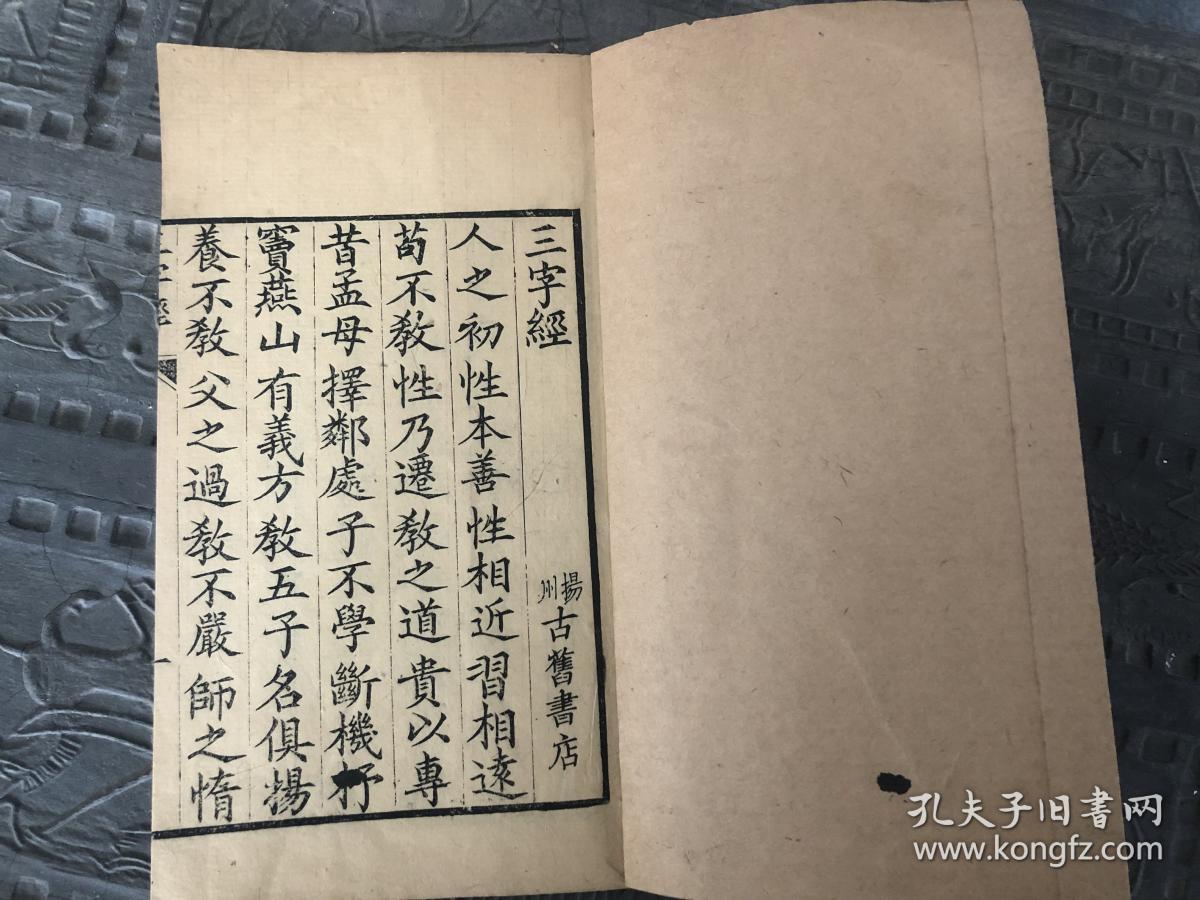 三字經
揚州古舊書店
人之初性本善性相近習相遠
苟不教性乃遷教之道貴以專
昔孟母擇鄰處子不學斷機杼
竇燕山有義方教五子名俱揚
養不教父之過教不嚴師之惰
三字經
一
孔夫子旧书网
www.kongfz.com